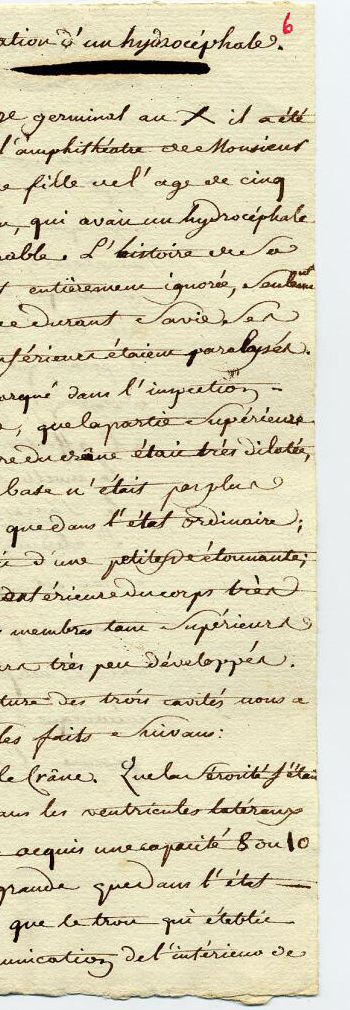 6
ation d'un hydrocéphale.
re germinal an X il a été
l'amphithéatre de Monsieur
e fille de l'age de cinq
n, qui avait un hydrocéphale
rable. L'histoire de sa
t entièrement ignorée, seulement
ue durant sa vie, ses
nférieurs étaient paralysés.
arqué dans l'inspection
e, que la partie supérieure
re du crâne était très dilatée,
base n'était pas plus
que dans l'état ordinaire;
it d'une petitesse étonnante;
extérieure du corps très
s membres tant supérieurs
urs très peu développés.
ture des trois cavités nous a
les faits suivans:
le Crâne. Que la sérosité s'étai
ans les ventricules latéraux
acquis une capacité 8 ou 10
grande que dans l'état
que le trou qui établie
munication de l'intérieur de